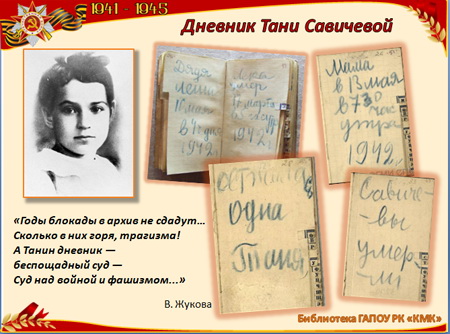 1941 - 1945
Дневник Тани Савичевой
Дядя
Леша
10 мая
в 4 ч дня
1942 г.
Мама
в 13 мая
в 7.30
час
утра
1942 г.
осталась
одна
Таня
Савиче-
вы
умер-
ли
«Годы блокады в архив не сдадут…
Сколько в них горя, трагизма!
А Танин дневник —
беспощадный суд —
Суд над войной и фашизмом...»
В. Жукова
Библиотека ГАПОУ РК «КМК»